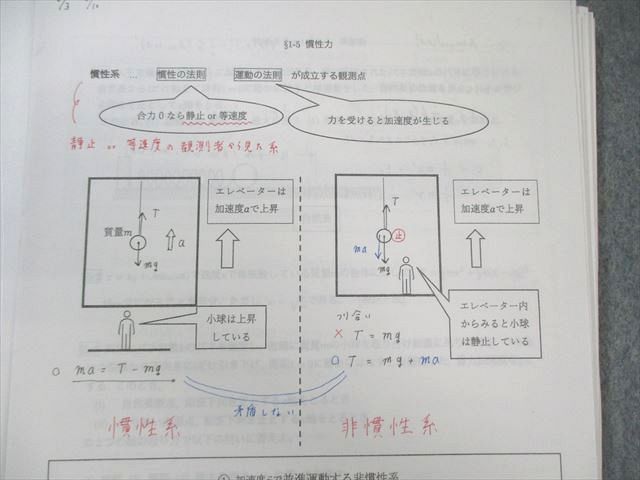 2/3 2/10
§1-5 慣性力
慣性系 … 慣性の法則 運動の法則 が成立する観測点
合力0なら静止or等速度
力を受けると加速度が生じる
静止 or 等速度の観測者から見た系
エレベーターは
加速度aで上昇
T
質量m
a
mg
小球は上昇
している
ma = T - mg
慣性系
エレベーターは
加速度aで上昇
T
止
ma
mg
エレベーター内
からみると小球
は静止している
× T = mg
○ T = mg + ma
矛盾しない
非慣性系
① 加速度で並進運動する非慣性系